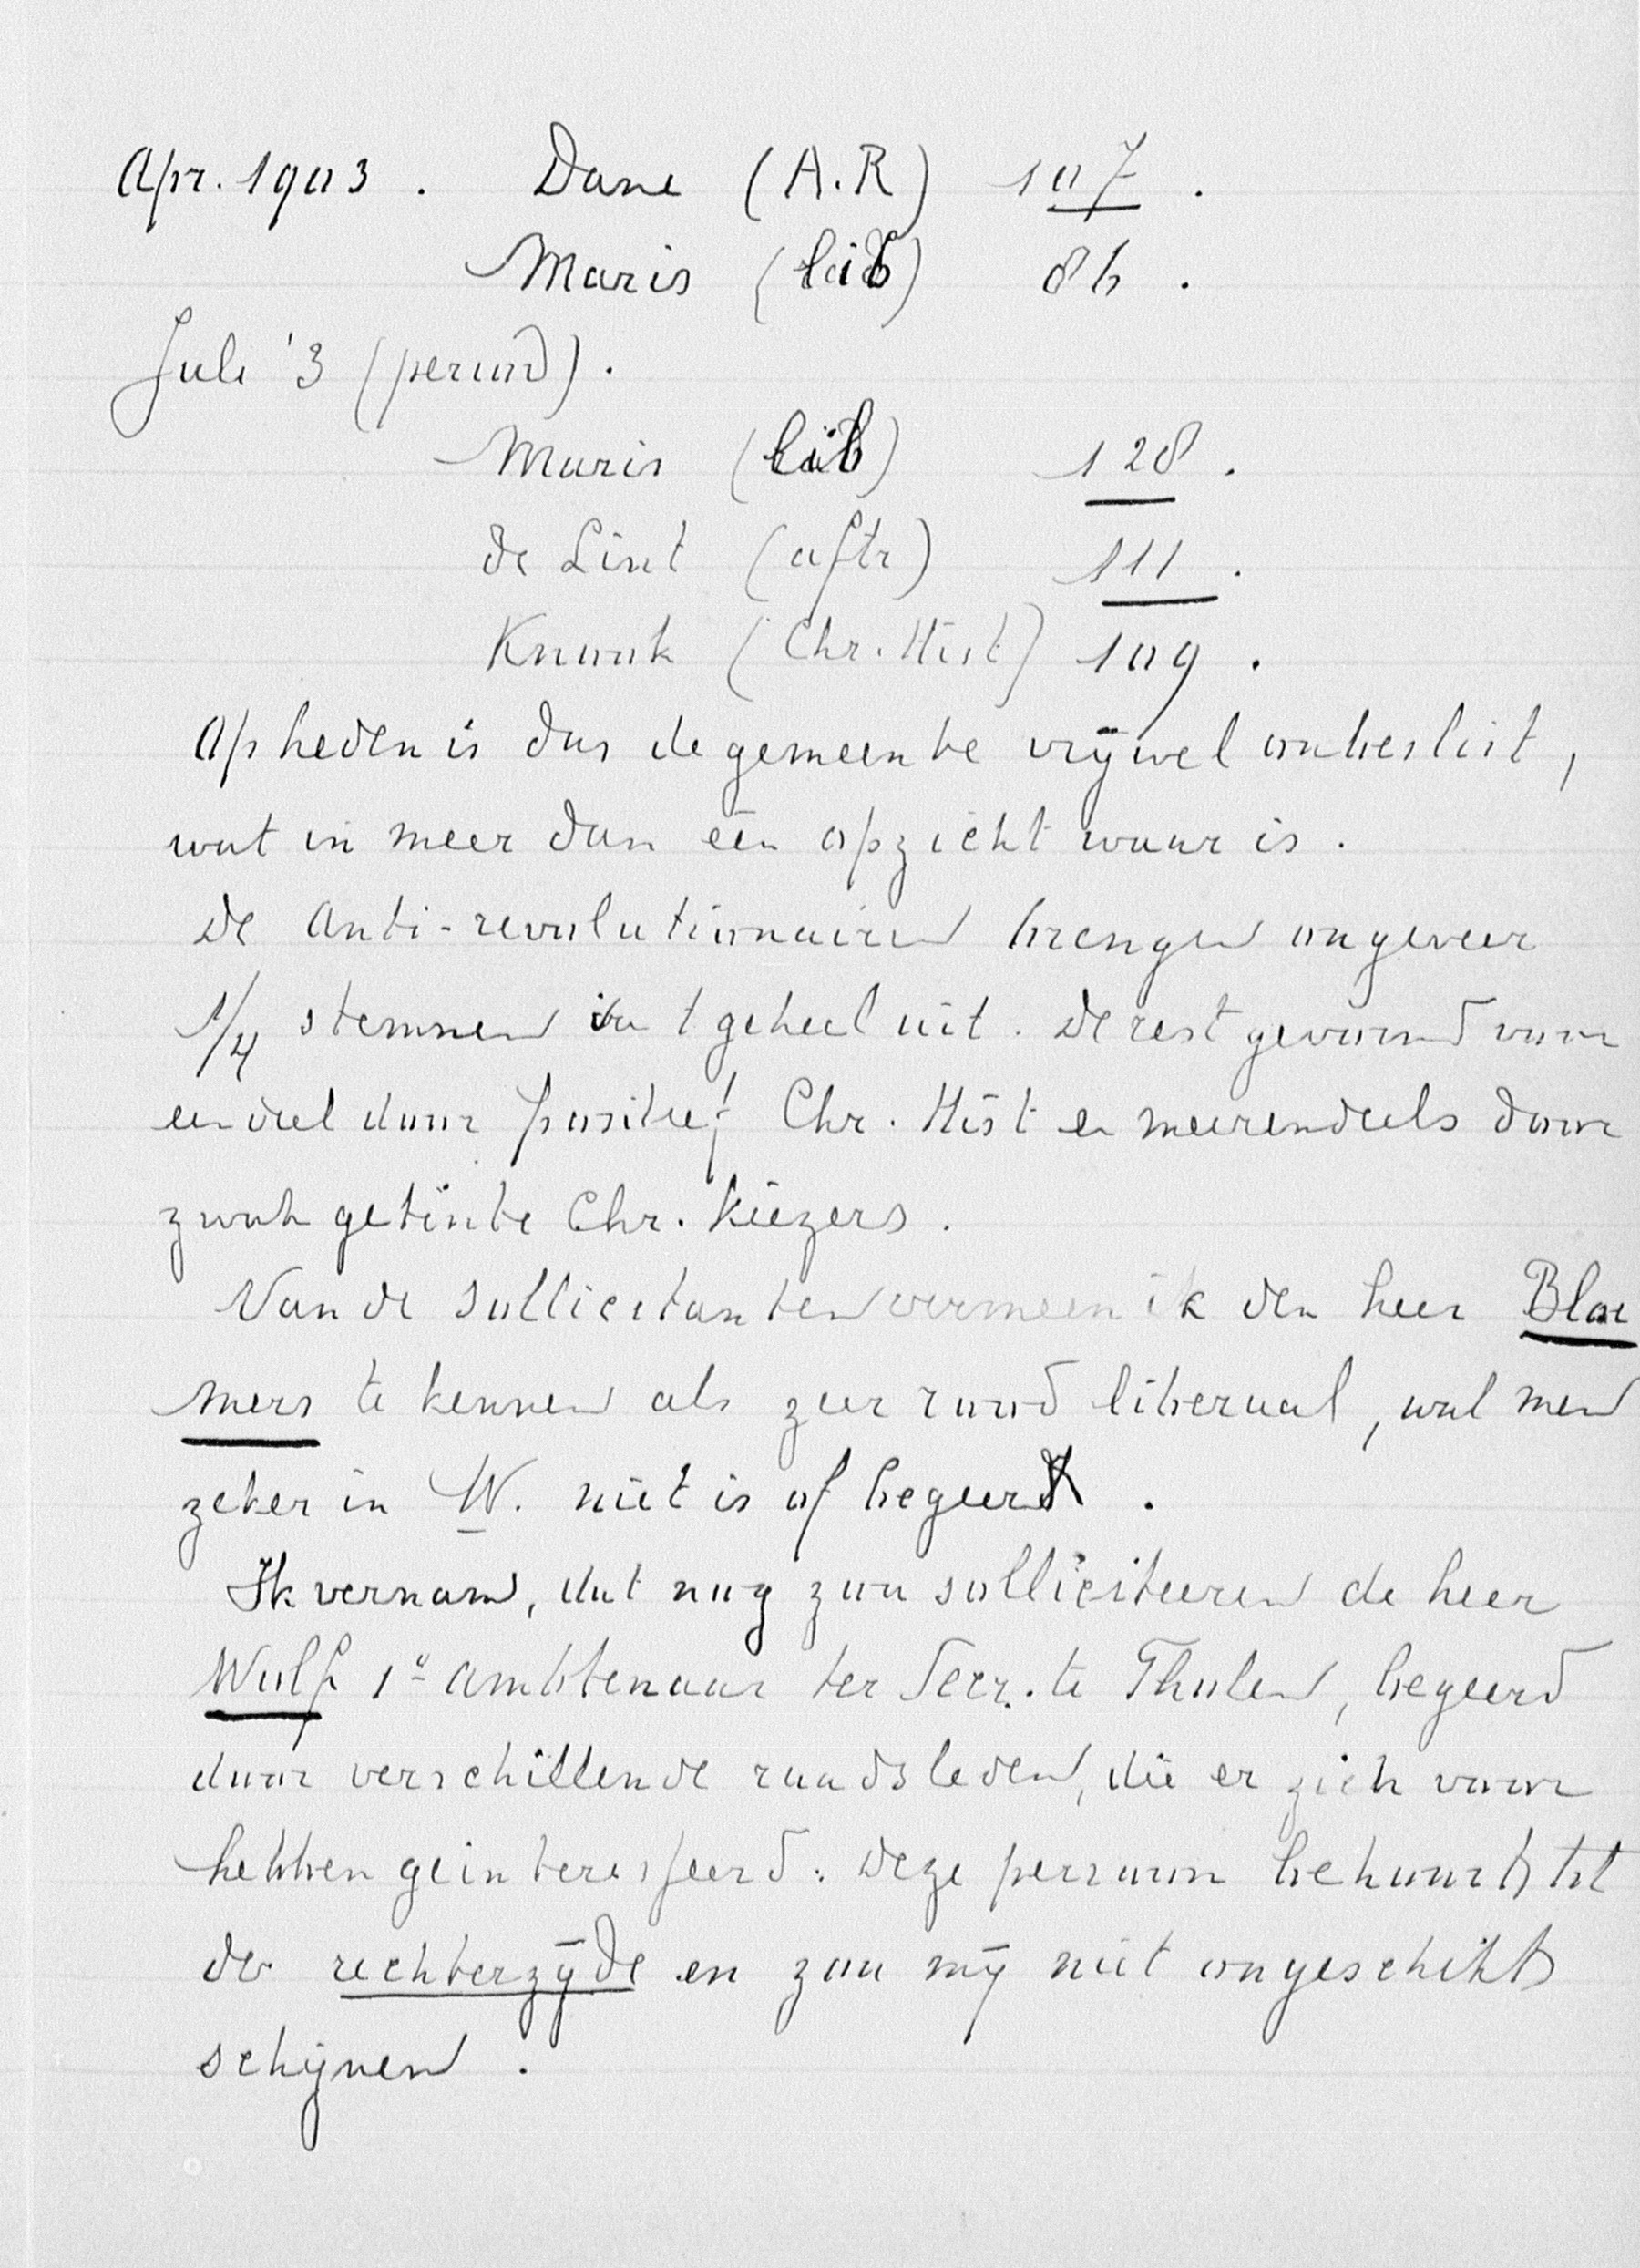 Apr. 1903. Dane (A.R) 107.
Maris (lib) 86.
Juli '3 (period).
Maris (lib) 128.
de Lint (aftr) 111.
Knook (Chr. Hist) 109.
Op heden is dus de gemeente vrijwel onbeslist,
wat in meer dan één opzicht waar is.
De Anti-revolutionairen brengen ongeveer
1/4 stemmen in 't geheel uit. De rest gevormd voor
een deel door positief Chr. Hist en meerendeels door
zwak getinte Chr. Kiezers.
Van de sollicitanten vermeen ik den heer Bloe
mers te kennen als zeer rood liberaal, wat men
zeker in W. niet is of begeert.
Ik vernam, dat nog zou solliciteeren de heer
Wolf 1e ambtenaar ter Secr. te Tholen, begeerd
door verschillende raadsleden, die er zich voor
hebben geinteresseerd. Deze persoon behoort tot
de rechterzijde en zou mij niet ongeschikt
schijnen.